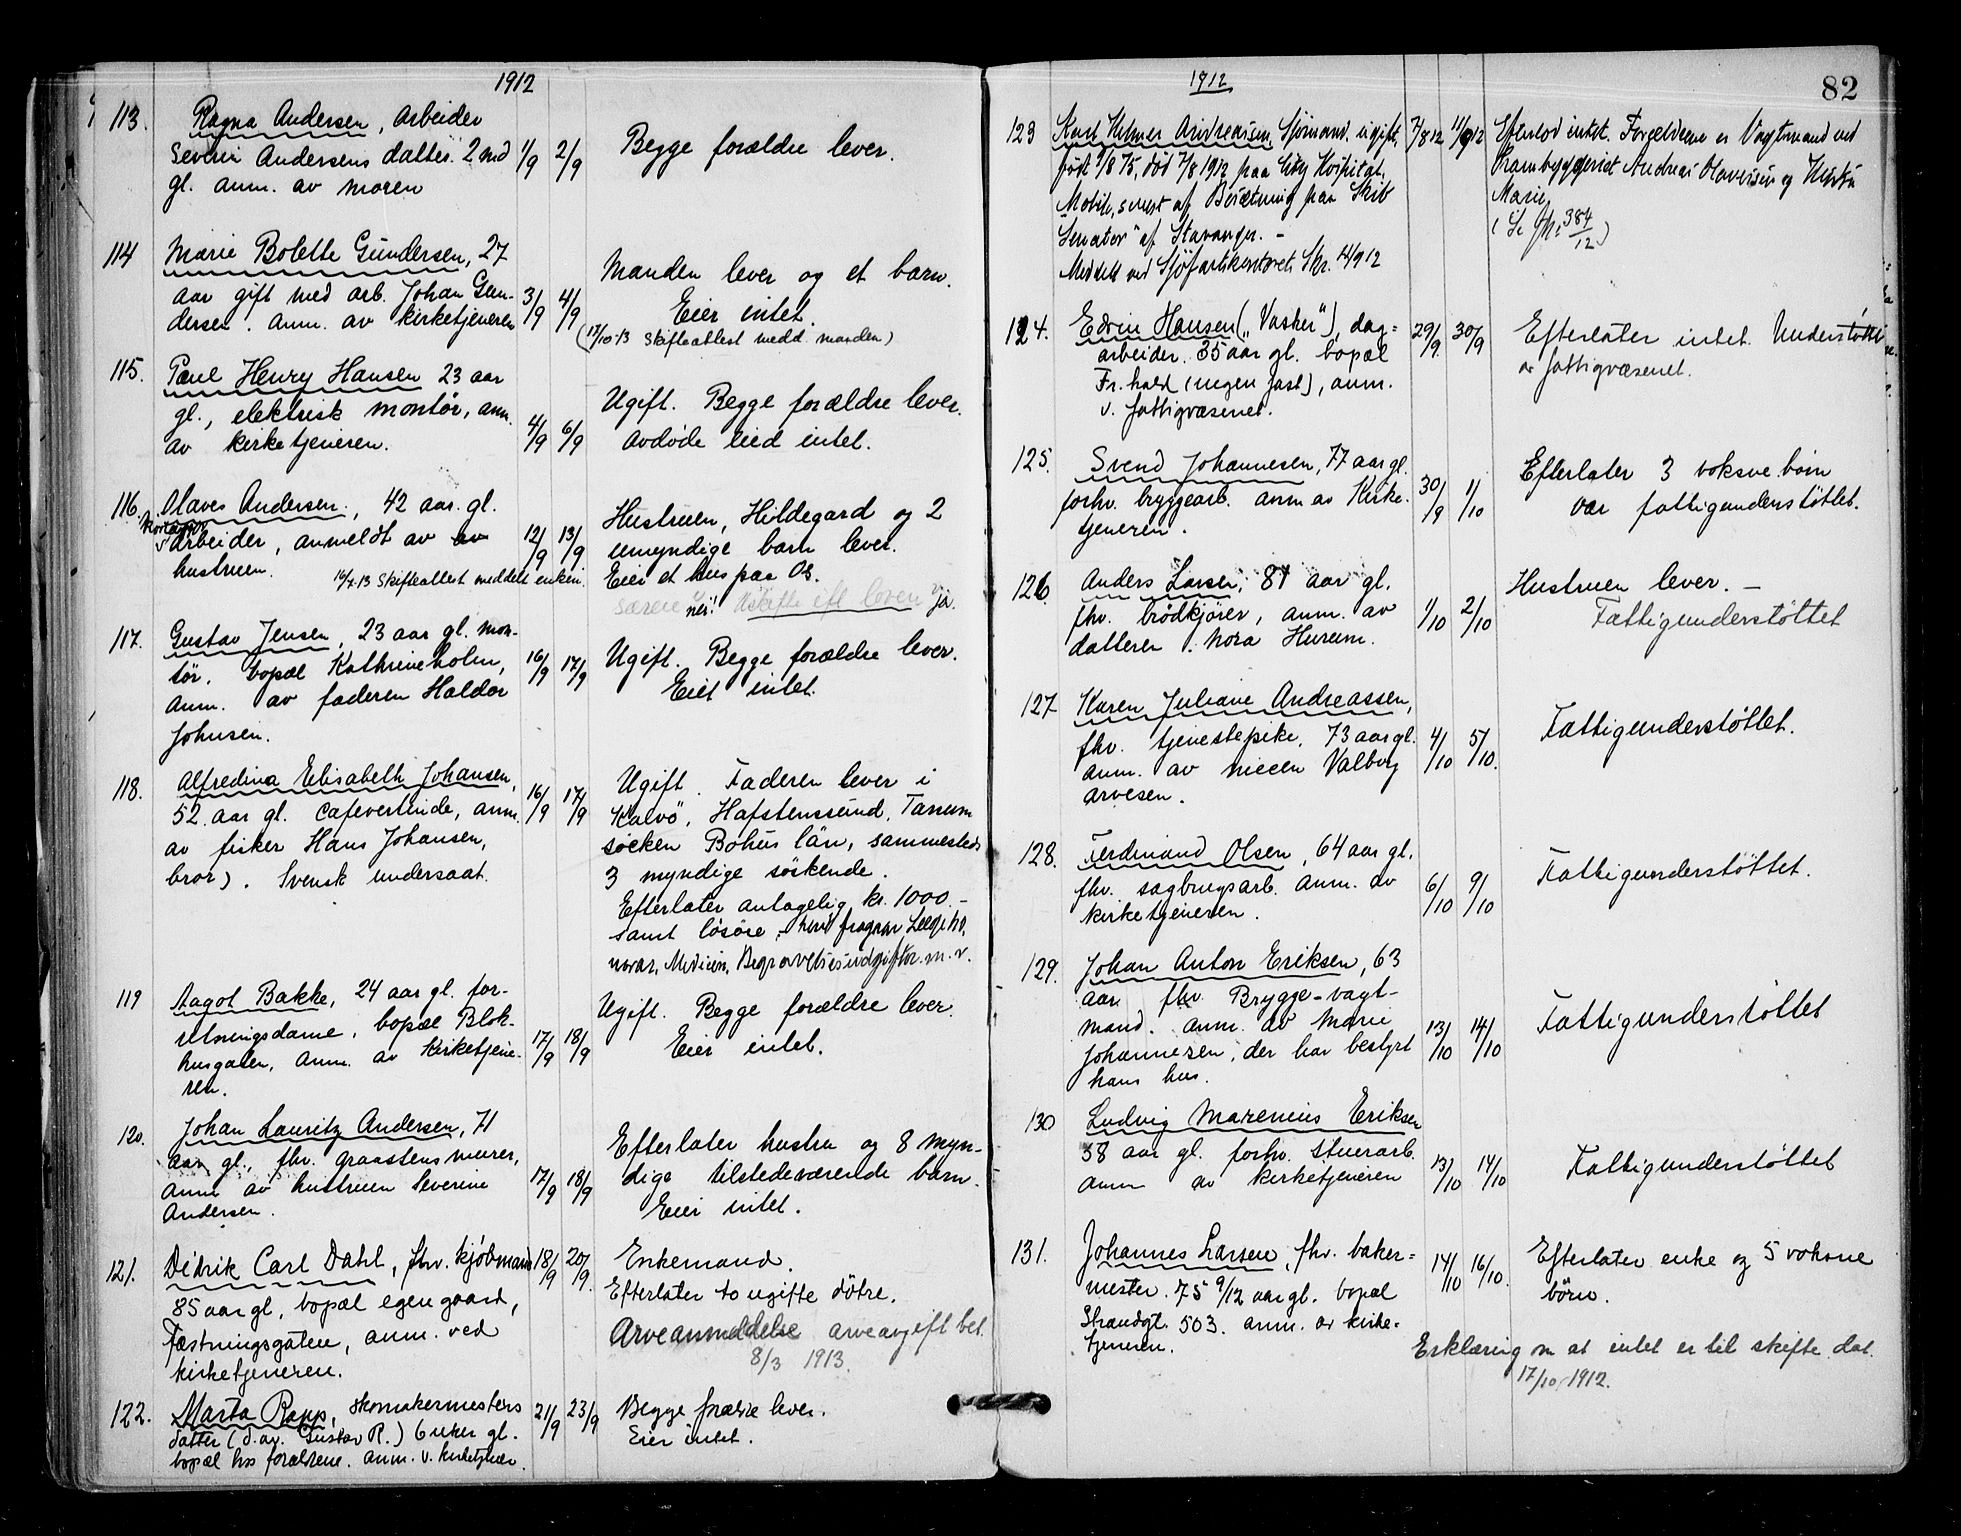 1912
113. Ragna Andersen, Arbeider
Severin Andersens datter. 2 md 1/9 2/9 Begge forældre lever.
gl. anm. av moren
114 Marie Bolette Gundersen, 27
aar gift med arb. Johan Gun- 3/9 4/9 Manden lever og et barn.
dersen. anm. av kirketjeneren Eier intet.
(17/10-13 Skifteattest medd. manden)
115. Paul Henry Hansen 23 aar
gl., elektrisk montør, anm. 4/9 6/9 Ugift. Begge forældre lever.
av kirketjeneren. Avdøde eied intet.
116. Olaves Andersen, 42 aar gl.
arbeider, anmeldt av 12/9 13/9 Hustruen, Hildegard og 2
hustruen. umyndige barn lever.
14/4-13 Skifteattest meddelt enken. Eier et hus paa Os.
nei! Uskifte eft loven ja.
117. Gustav Jensen, 23 aar gl. mon-
tør, bopæl Kathrineholm, 16/9 17/9 Ugift. Begge forældre lever.
anm. av faderen Haldor Eiet intet.
Johnsen.
118. Alfredina Elisabeth Johansen,
52 aar gl. Cafevertinde, anm. 16/9 17/9 Ugift. Faderen lever i
av fisker Hans Johansen, Kalvö, Hafstenssund, Tanum
bror). Svensk undersaat. söcken Bohus län, sammesteds
3 myndige söskende.
Efterlater antagelig kr. 1000.-
samt løsøre, hvori fragaar Lægeho-
norar, Medicin, Begravelsesudgifter m. v.
119 Aagot Bakke, 24 aar gl. for-
retningsdame, bopæl Blok- 17/9 18/9 Ugift. Begge forældre lever.
husgaten, anm. av Kirketjene- Eier intet.
ren.
120. Johan Lauritz Andersen, 71
aar gl., fhv. graastensmurer, 17/9 18/9 Efterlater hustru og 8 myn-
anm av hustruen Severine dige tilstedeværende barn.
Andersen. Eier intet.
121. Didrik Carl Dahl, fhv. kjøbmand 18/9 20/9. Enkemand.
85 aar gl, bopæl egen gaard, Efterlater to ugifte døtre.
Fæstningsgaten, anm. ved Arveanmeldelse arveavgift bet.
kirketjeneren. 8/3 1913.
122. Marta Rapp, skomakermesters 21/9 23/9 Begge forældre lever.
datter (d. av Gustav R.) 6 uker gl. Eier intet.
bopæl hos forældrene. anm. v. kirketjener.
1912
82
123 Karl Hilmer Andreassen, Sjømand, ugift, 7/8 12 11/9 12 Efterlod intet. Forældrene er Vagtmand ved
født 9/8 75, død 7/8 1912 paa City Hospital, Andreas Olavesen og Hustru
Mobile, senest af Besætning paa Skib Marie.
"Senator" af Stavanger. - 384/12)
Meddelt ved Sjøfartskontorets Skr. 14/9 12
124. Edvin Hansen („Vasker"), dag= 29/9. 30/9 Efterlater intet. Understøttet
arbeider. 35 aar gl. bopæl av fattigvæsenet.
Fr.hald (ingen fast), anm.
v. fattigvæsenet.
125. Svend Johannesen, 77 aar gl.
forhv. bryggearb. anm av Kirke- 30/9 1/10 Efterlater 3 voksne børn
tjeneren. var fattigunderstøttet.
126. Anders Larsen, 81 aar gl. Hustruen lever. -
fhv. brødkjører, anm. av 1/10 2/10 Fattigunderstøttet
datteren Nora Hurum.
127 Karen Juliane Andreassen,
fhv. tjenestepike, 73 aar gl. 4/10 5/10. Fattigunderstøttet.
anm. av niecen Valborg
Arvesen.
128. Ferdinand Olsen, 64 aar gl.
fhv. sagbrugsarb. anm. av 6/10 9/10 Fattigunderstøttet.
kirketjeneren.
129. Johan Anton Eriksen, 63
aar fhv. Brygge-vagt-
mand. anm. av Marie 13/10 14/10 Fattigunderstøttet
Johannesen, der har bestyrt
hans hus.
130 Ludvig Marenius Eriksen
38 aar gl. forhv. stuerarb. 13/10 14/10 Fattigunderstøttet
anm av kirketjeneren
131. Johannes Larsen, fhv. baker= 14/10 16/10. Efterlater enke og 5 voksne
mester. 75 9/12 aar gl. bopæl børn.
Strandgt. 503. anm. av kirke=
tjeneren. Erklæring om at intet er til skifte dat.
17/10 1912.